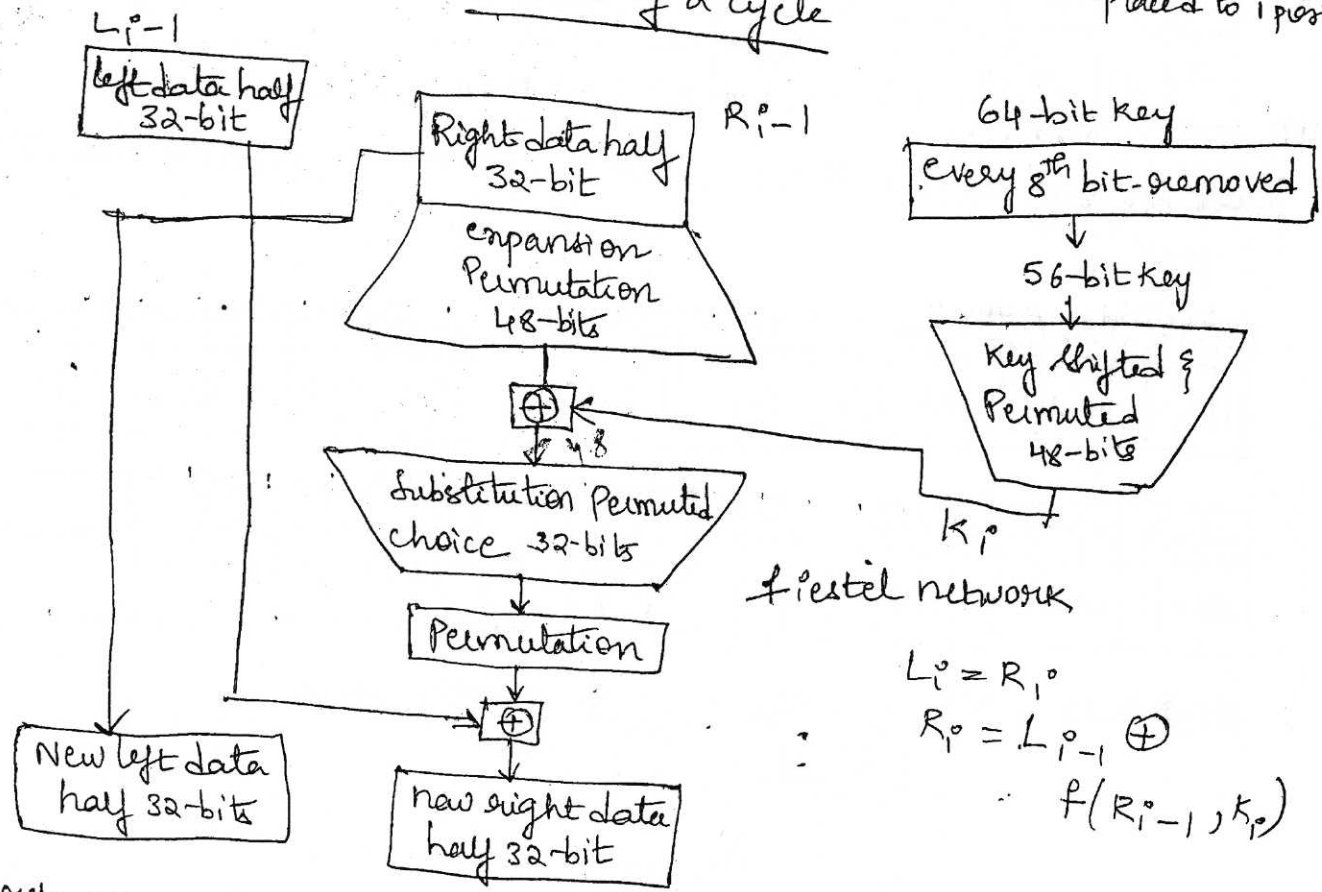 of a cycle
placed to 1 pos
L i-1
left data half
32-bit
Right data half
32-bit
R i-1
64-bit key
every 8th bit-removed
56-bit key
expansion
Permutation
48-bits
Key shifted &
Permuted
48-bits
⊕
48
K i
Substitution Permuted
choice 32-bits
fiestel network
Permutation
⊕
L i = R i
R i = L i-1 ⊕
f(R i-1, K i)
New left data
half 32-bits
new right data
half 32-bit